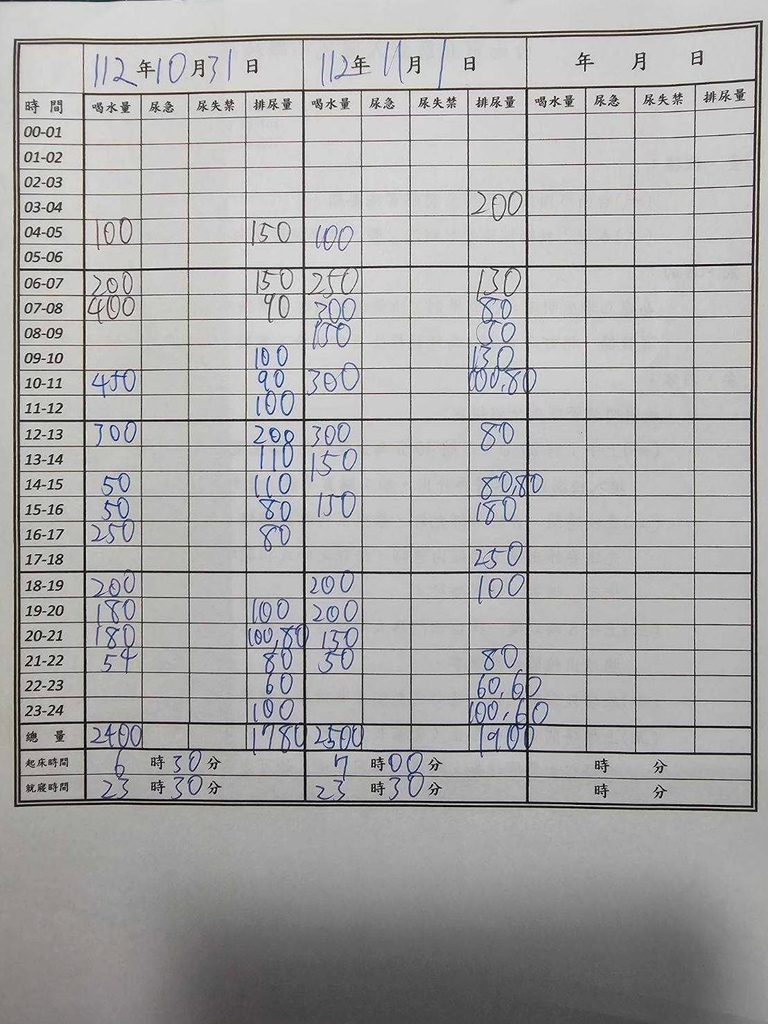 112年10月31日 112年11月1日 年 月 日
時間 喝水量 尿急 尿失禁 排尿量 喝水量 尿急 尿失禁 排尿量 喝水量 尿急 尿失禁 排尿量
00-01
01-02
02-03
03-04 200
04-05 100 150 100
05-06
06-07 200 150 250 130
07-08 400 90 300 80
08-09 150 50
09-10 100 130
10-11 450 90 300 100,80
11-12 100
12-13 300 200 300 80
13-14 110 150
14-15 50 110 80,80
15-16 50 80 150 180
16-17 250 80
17-18 250
18-19 200 200 100
19-20 180 100 200
20-21 180 100,80 150
21-22 54 80 50 80
22-23 60 60,60
23-24 100 100,60
總量 2400 1780 2500 1900
起床時間 6時30分 7時00分 時 分
就寢時間 23時30分 23時30分 時 分